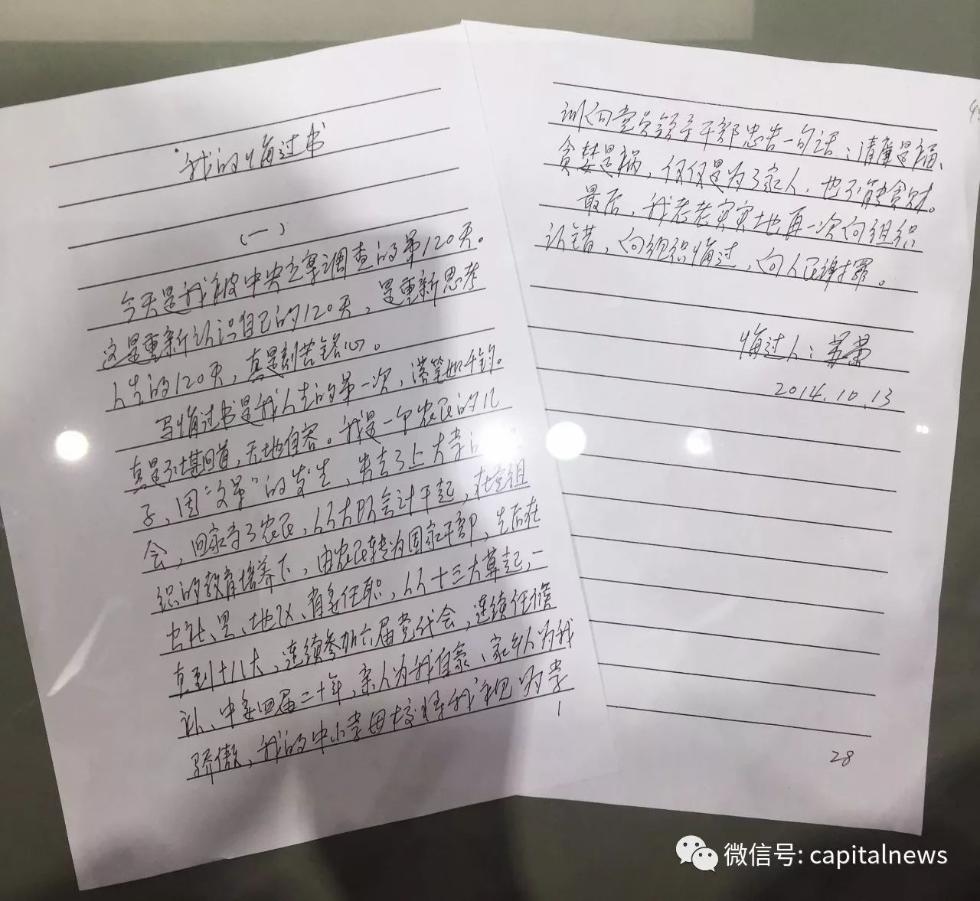 我的悔过书
(一)
今天是我被中央立案调查的第120天。
这是重新认识自己的120天,是重新思考
人生的120天,真是刻苦铭心。
写悔过书是我人生的第一次,落笔如千钧。
真是不堪回首,无地自容。我是一个农民的儿
子,因“文革”的发生,失去了上大学的
会,回家当了农民,从大队会计干起,在党组
织的教育培养下,由农民转为国家干部,先后在
公社、县、地区、省委任职,从十三大算起,一
直到十八大,连续参加六届党代会,连续任候
补、中委四届二十年,亲人为我自豪、家乡人为我
骄傲,我的中小学母校将我视为学
1
训向党员领导干部忠告一句话:清廉是福、
贪婪是祸,仅仅是为了家人,也不能贪财。
最后,我老老实实地再一次向组织
认错,向组织悔过,向人民谢罪。
悔过人:苏荣
2014.10.13
28
微信号: capitalnews